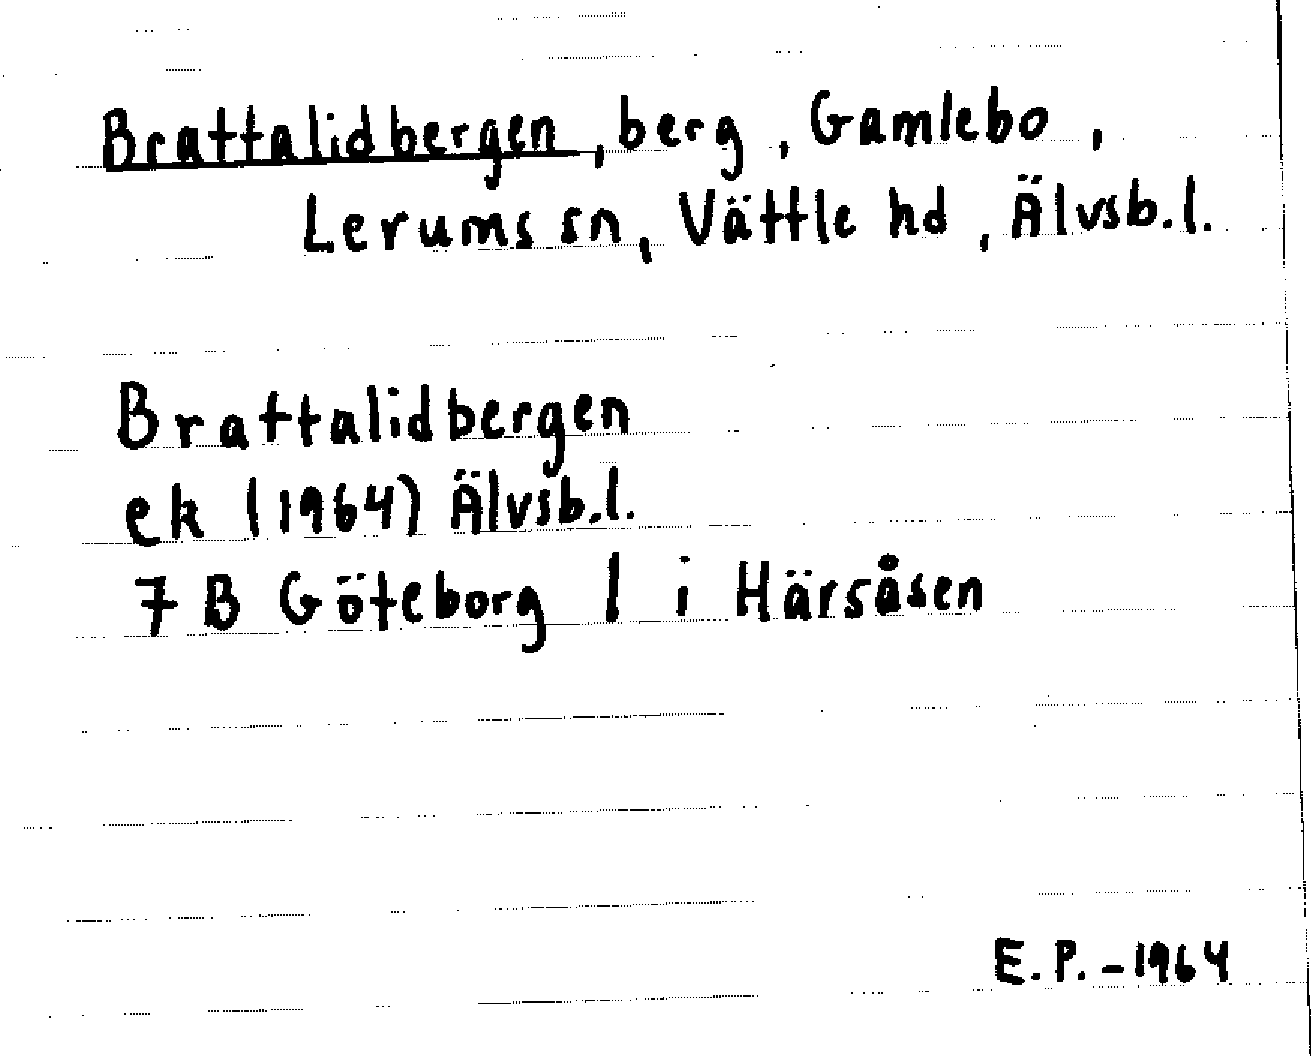 Brattalidbergen, berg, Gamlebo,
Lerums sn, Vättle hd, Älvsb.l.
Brattalidbergen
ek (1964) Älvsb.l.
7 B Göteborg | i Härsåsen
E.P.-1964